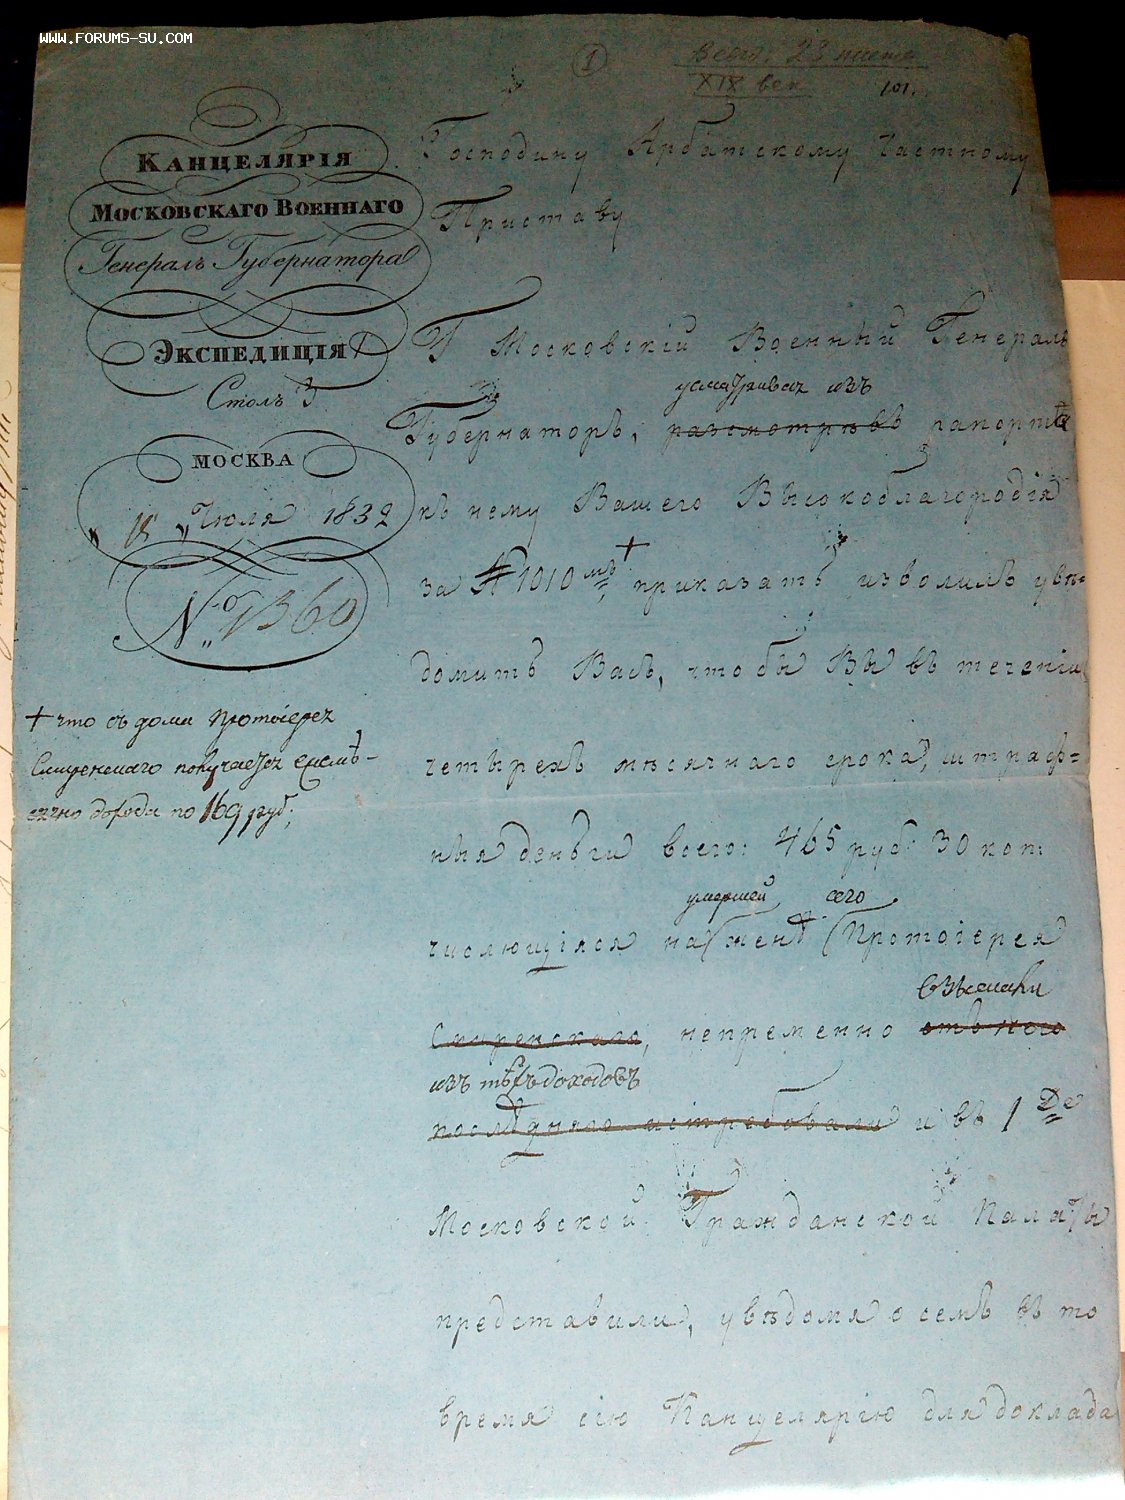 WWW.FORUMS-SU.COM
1
Всего 23 листа
XIX век
101.
КАНЦЕЛЯРІЯ
МОСКОВСКАГО ВОЕННАГО
Генералъ Губернатора
ЭКСПЕДИЦІЯ 1
Столъ 3
МОСКВА
Іюля 1832
№ 1360
Господину Арбатскому Частному
Приставу
Г Московскій Военный Генералъ
усматривая изъ
Губернаторъ, разсмотрѣвъ рапорта
къ нему Вашего Высокоблагородія
за № 1010 мъ + приказать изволилъ увѣ=
домить Васъ, чтобы Вы въ теченіи
четырехъ мѣсячнаго срока, штраф=
ныя деньги всего: 465 руб: 30 коп:
умершей сего
числющіяся на женѣ Протоіерея
взыскали
Смиренскаго, непременно отъ него
изъ тѣхъ доходовъ
послѣдняго истребовали и въ 1 Де
Московской Гражданской Палаты
представили, увѣдомя о семъ въ то
время сію Канцелярію для доклада
+ что съ дома Протоіерея
Смиренскаго получается ежемѣ-
сячно дохода по 169 руб;